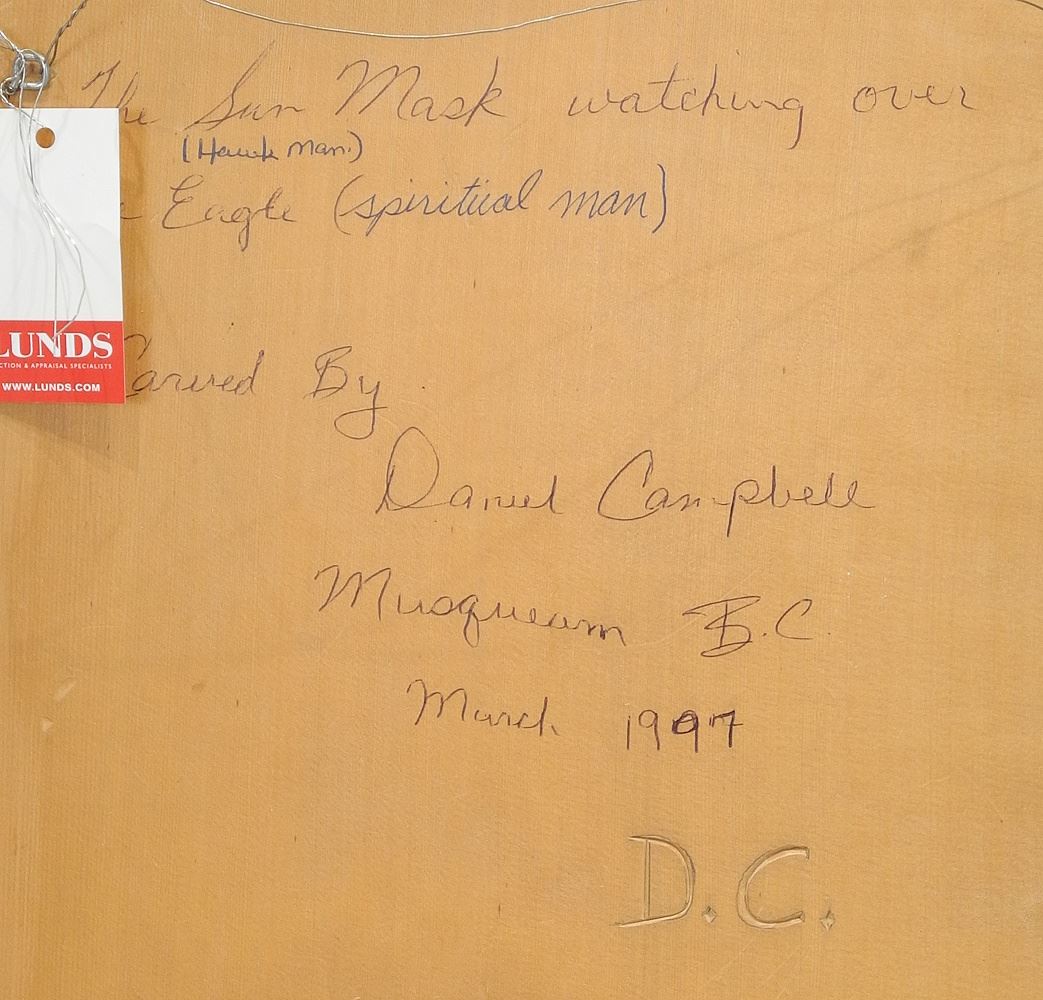 The Sun Mask watching over
(Hawk Man.)
e Eagle (spiritual man)
Carved By
Daniel Campbell
Musqueam B.C.
March 1997
D.C.
LUNDS
CTION & APPRAISAL SPECIALISTS
WWW.LUNDS.COM